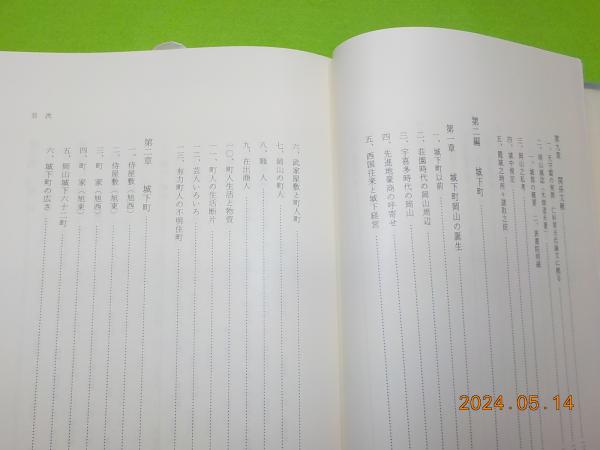 第九章　関係文献
三、岡山之私考
四、城中規定
第二編　城下町
第一章　城下町岡山の誕生
一、城下町以前
二、荘園時代の岡山周辺
三、宇喜多時代の岡山
四、先進地豪商の呼寄せ
五、西国往来と城下経営
六、武家屋敷と町人町
七、岡山の町人
八、職人
九、在出商人
一〇、町人生活と物資
一一、町人の生活断片
一二、芸人いろいろ
一三、有力町人の不明住町
第二章　城下町
一、侍屋敷（旭西）
二、侍屋敷（旭東）
三、町家（旭西）
四、町家（旭東）
五、岡山城下六十二町
六、城下町の広さ
目次
2024.05.14